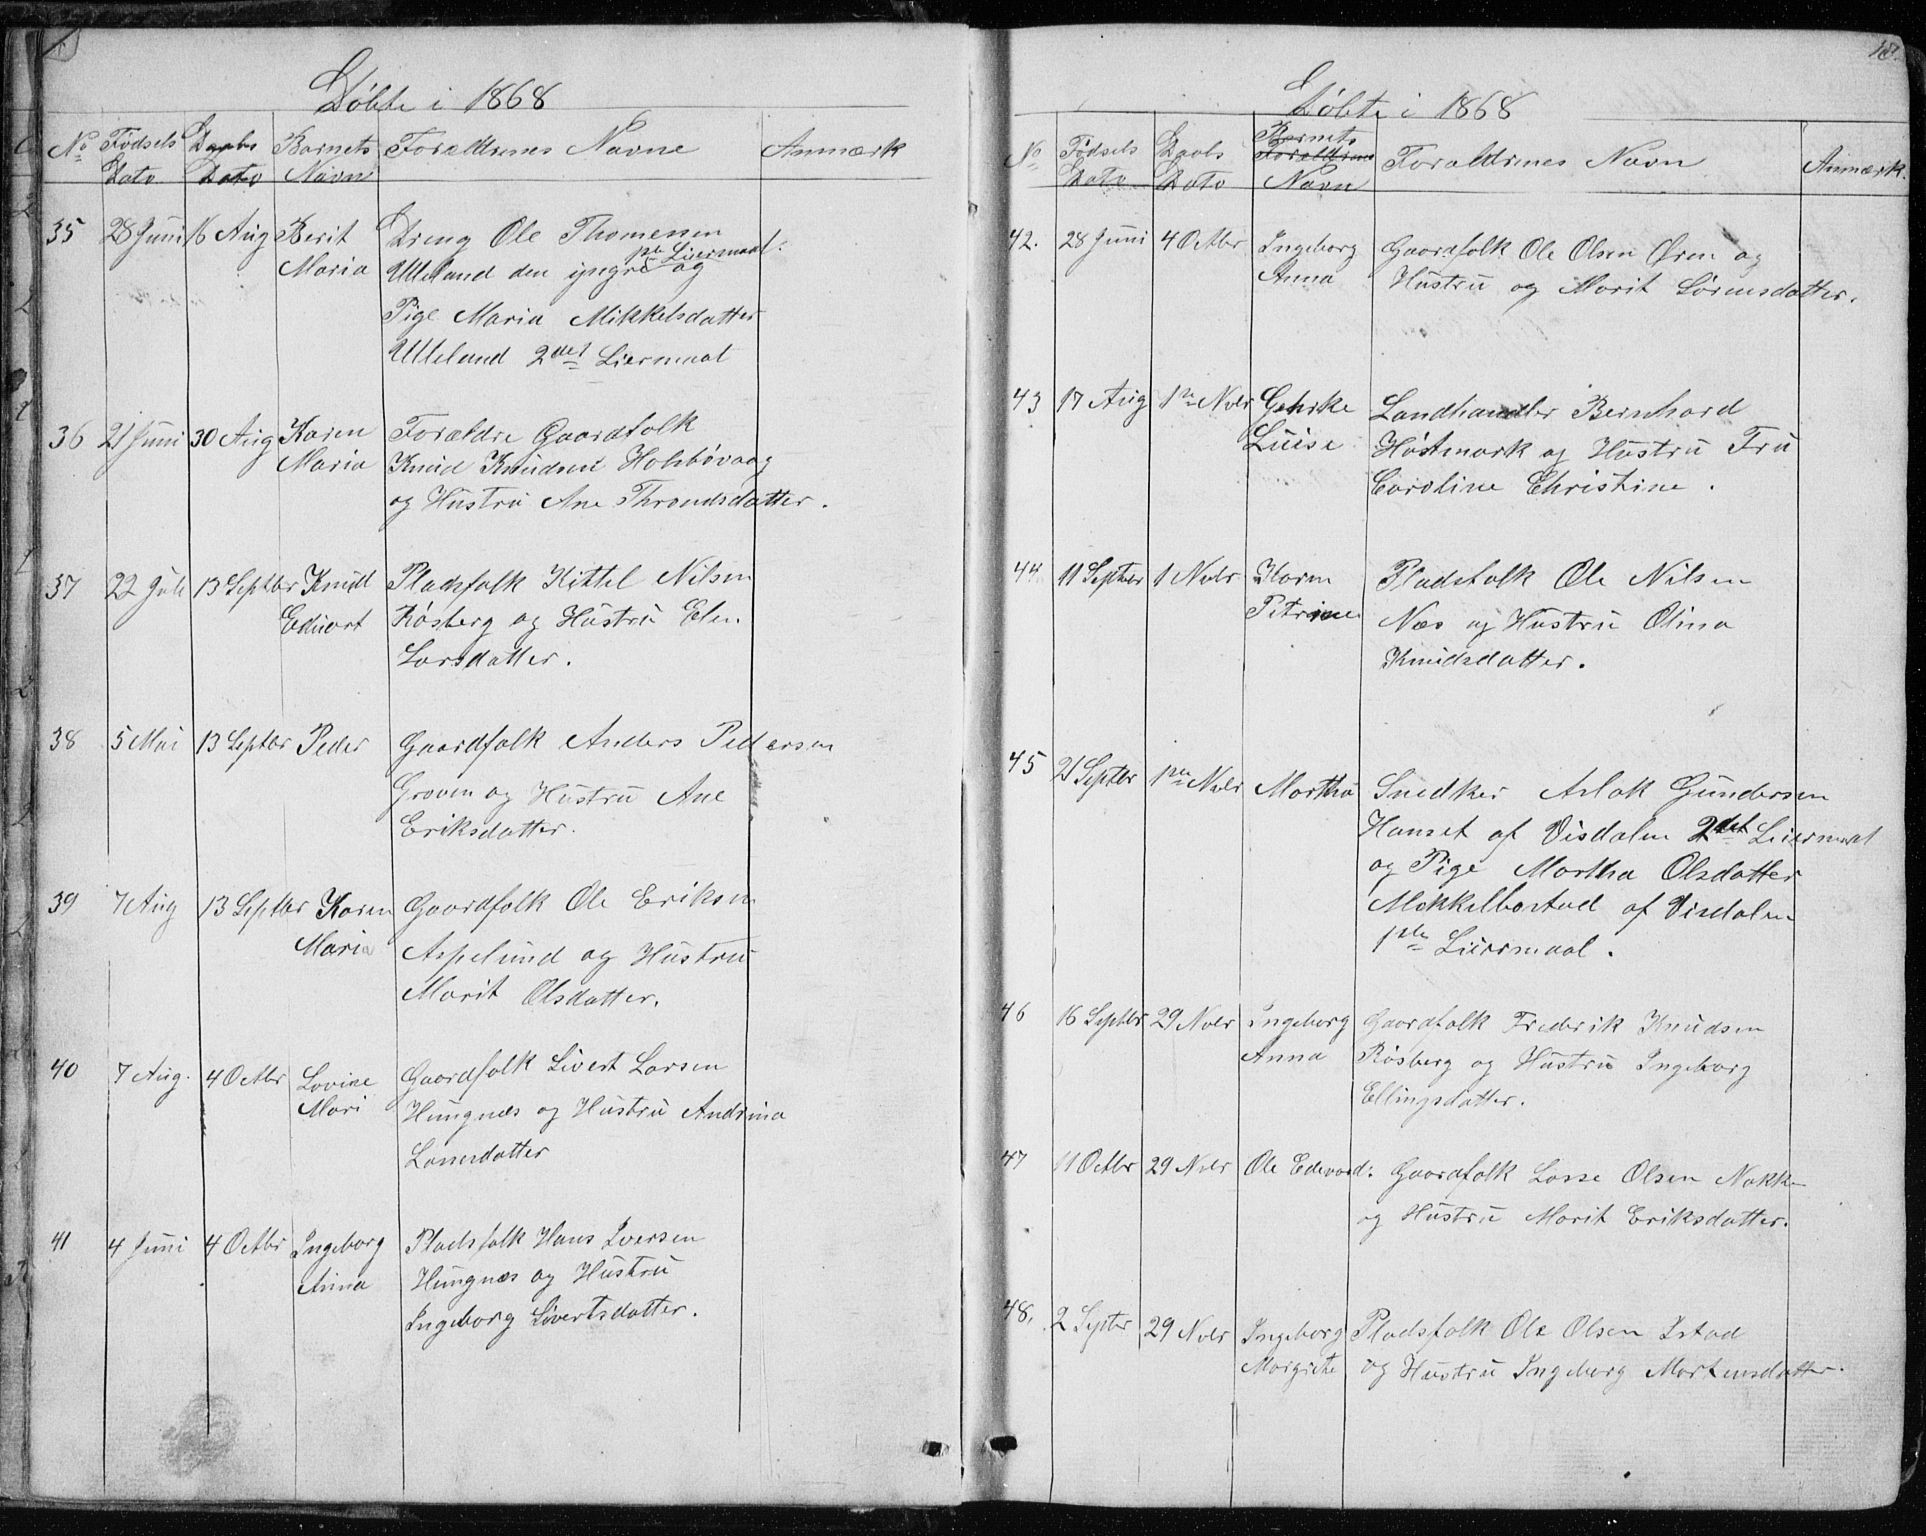 Döbte i 1868
No Fødsels Daabs Barnets Forældrenes Navne Anmærk
Dato Dato Navn
35 28 Juni 16 Aug Berit Dreng Ole Thomesen
Maria Ulleland den yngre og pte Liermaal:
Pige Maria Mikkelsdatter
Ulleland 2det Liermaal
36 21 Juni 30 Aug Karen Forældre Gaardfolk
Maria Knud Knudsen Holsbövaag
og Hustru Ane Throndsdatter.
37 22 Juli 13 Septbr Knud Pladsfolk Kittel Nilsen
Eduart Rösberg og Hustru Elen
Larsdatter.
38 5 Mai 13 Septbr Peder Gaardfolk Anders Pedersen
Groven og Hustru Ane
Eriksdatter.
39 7 Aug 13 Septbr Karen Gaardfolk Ole Eriksen
Maria Aspelund og Hustru
Marit Olsdatter.
40 7 Aug. 4 Octbr Lovise Gaardfolk Sivert Larsen
Mari Hungnæs og Hustru Andrina
Larsdatter
41 4 Juni 4 Octbr Ingeborg Pladsfolk Hans Iversen
Anna Hungnæs og Hustru
Ingeborg Sivertsdatter.
18.
Döbte i 1868
No Fødsels Daabs Barnets Forældrenes Forældrenes Navn Anmærk.
Dato Dato Navn
42. 28 Juni 4 Octbr Ingeborg Gaardfolk Ole Olsen Ören og
Anna Hustru og Marit Sörensdatter.
43 17 Aug 1te Novbr Gehrke Landhandler Bernhard
Luise Höstmark og Hustru Fru
Caroline Christine.
44. 11 Septber 1 Novbr Karen Pladsfolk Ole Nilsen
Petrine Næs og Hustru Olina
Knudsdatter.
45 21 Septbr 1te Novbr Martha Snedker Aslak Gundersen
Hanset af Visdalen 2det Leiermaal
og Pige Martha Olsdatter
Mekkelbostad af Visdalen
1ste Leiermaal.
46 16 Septbr 29 Novbr Ingeborg Gaardfolk Frederik Knudsen
Anna Rösberg og Hustru Ingeborg
Ellingsdatter.
47 11 Octbr 29 Novbr Ole Edevard: Gaardfolk Lasse Olsen Nakken
og Hustru Marit Eriksdatter.
48. 2 Septer 29 Novbr Ingeborg Pladsfolk Ole Olsen Istad
Margrete og Hustru Ingeborg Mortensdatter.